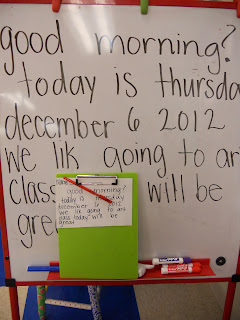 good morning?
today is thursda
december 6 2012
we lik going to ar
clas will be
gre
good morning?
today is thursday
december 6 2012
we lik going to art
class today will be
great